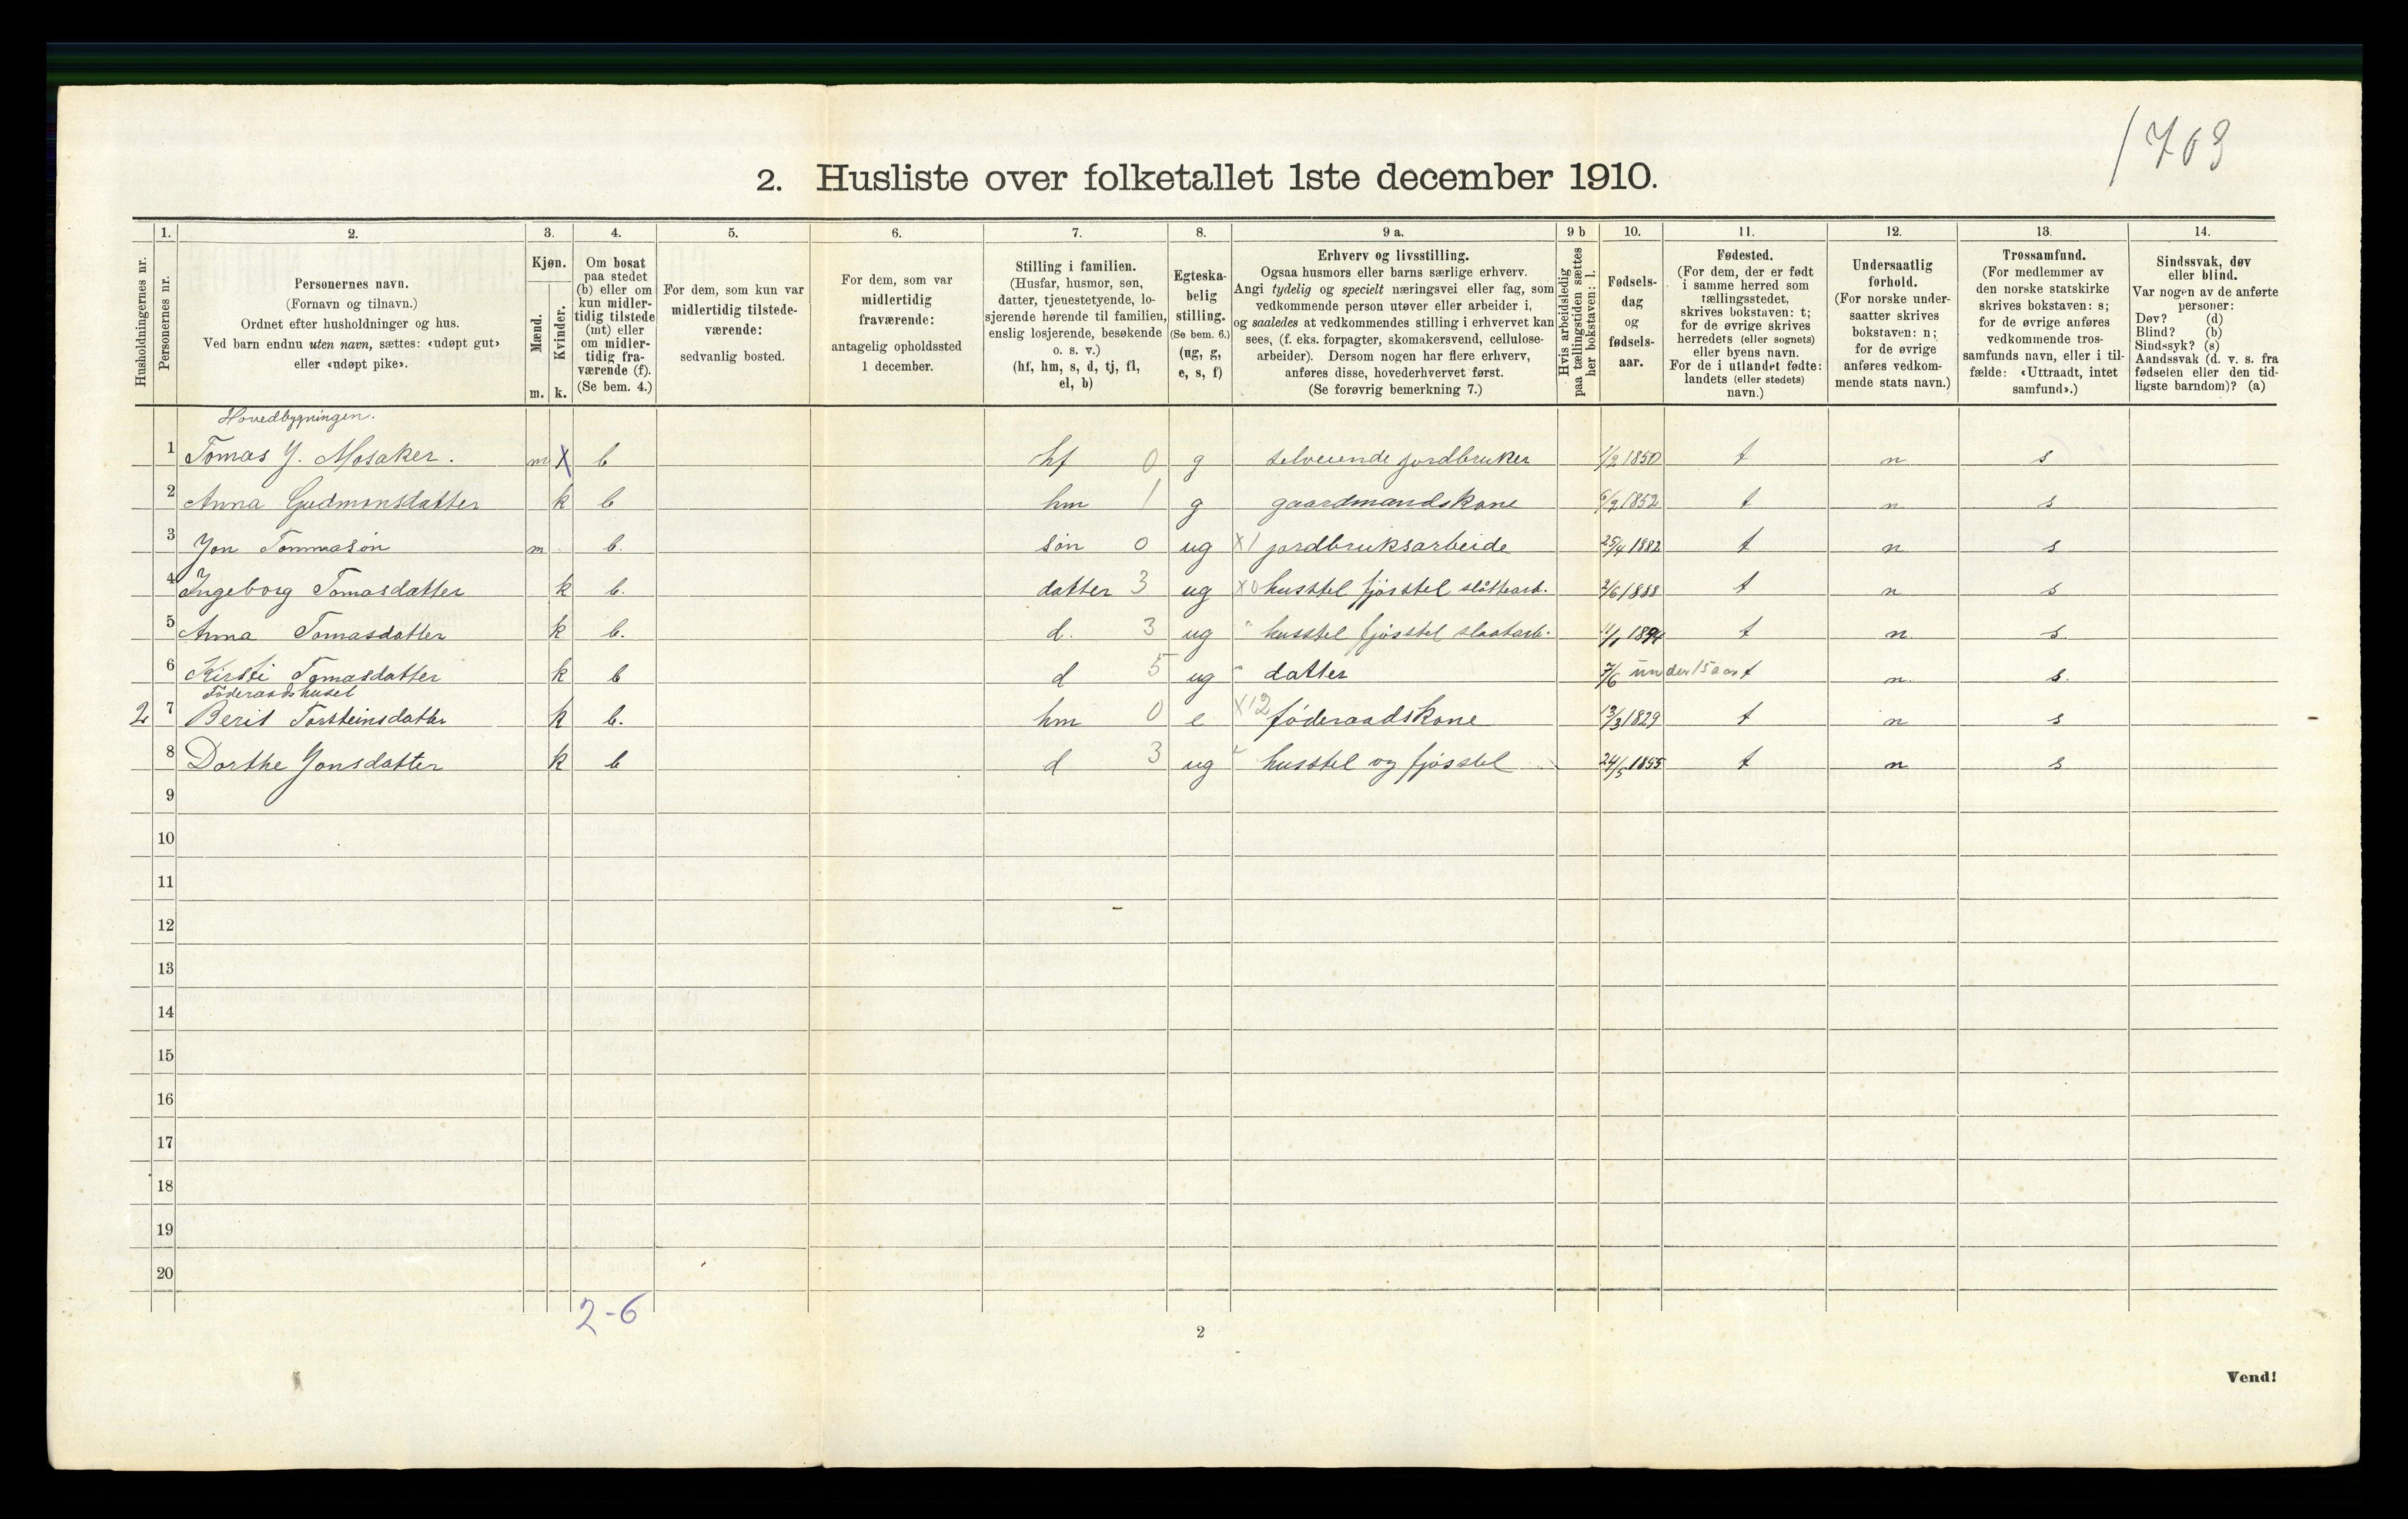 1703
2. Husliste over folketallet 1ste december 1910.
Husholdningernes nr.
1. Personernes nr.
2. Personernes navn.
(Fornavn og tilnavn.)
Ordnet efter husholdninger og hus.
Ved barn endnu uten navn, sættes: «udøpt gut»
eller «udøpt pike».
3. Kjøn.
Mænd. m.
Kvinder. k.
4. Om bosat
paa stedet
(b) eller om
kun midler-
tidig tilstede
(mt) eller
om midler-
tidig fra-
værende (f).
(Se bem. 4.)
5. For dem, som kun var
midlertidig tilstede-
værende:
sedvanlig bosted.
6. For dem, som var
midlertidig
fraværende:
antagelig opholdssted
1 december.
7. Stilling i familien.
(Husfar, husmor, søn,
datter, tjenestetyende, lo-
sjerende hørende til familien,
enslig losjerende, besøkende
o. s. v.)
(hf, hm, s, d, tj, fl,
el, b)
8. Egteska-
belig
stilling.
(Se bem. 6.)
(ug, g,
e, s, f)
9 a. Erhverv og livsstilling.
Ogsaa husmors eller barns særlige erhverv.
Angi tydelig og specielt næringsvei eller fag, som
vedkommende person utøver eller arbeider i,
og saaledes at vedkommendes stilling i erhvervet kan
sees, (f. eks. forpagter, skomakersvend, cellulose-
arbeider). Dersom nogen har flere erhverv,
anføres disse, hovederhvervet først.
(Se forøvrig bemerkning 7.)
9 b Hvis arbeidsledig
paa tællingstiden sættes
her bokstaven: l.
10. Fødsels-
dag
og
fødsels-
aar.
11. Fødested.
(For dem, der er født
i samme herred som
tællingsstedet,
skrives bokstaven: t;
for de øvrige skrives
herredets (eller sognets)
eller byens navn.
For de i utlandet fødte:
landets (eller stedets)
navn.)
12. Undersaatlig
forhold.
(For norske under-
saatter skrives
bokstaven: n;
for de øvrige
anføres vedkom-
mende stats navn.)
13. Trossamfund.
(For medlemmer av
den norske statskirke
skrives bokstaven: s;
for de øvrige anføres
vedkommende tros-
samfunds navn, eller i til-
fælde: «Uttraadt, intet
samfund».)
14. Sindssvak, døv
eller blind.
Var nogen av de anførte
personer:
Døv? (d)
Blind? (b)
Sindssyk? (s)
Aandssvak (d. v. s. fra
fødselen eller den tid-
ligste barndom)? (a)
Hovedbygningen.
1 Tomas J. Mosaker. m X b hf 0 g selveiende jordbruker 1/2 1850 t n s
2 Anna Gudmunsdatter k b hm 1 g gaardmandskone 6/9 1852 t n s
3 Jon Tommasøn m b. søn 0 ug X1 jordbruksarbeide 25/4 1882 t n s
4 Ingeborg Tomasdatter k b. datter 3 ug X0 husstel fjøsstel slåttearb. 2/6 1888 t n s
5 Anna Tomasdatter k b. d. 3 ug " husstel fjøsstel slaatarb. 11/1 1894 t n. s.
6 Kirsti Tomasdatter k b d 5 ug " datter 7/6 under 15 aar t n. s.
Föderaadshuset
2 7 Berit Torsteinsdatter k b. hm 0 e X12 føderaadskone 13/3 1829 t n s
8 Dorthe Jonsdatter k b d 3 ug " husstel og fjøsstel 24/5 1855 t n s
9
10
11
12
13
14
15
16
17
18
19
20
2-6
2
Vend!